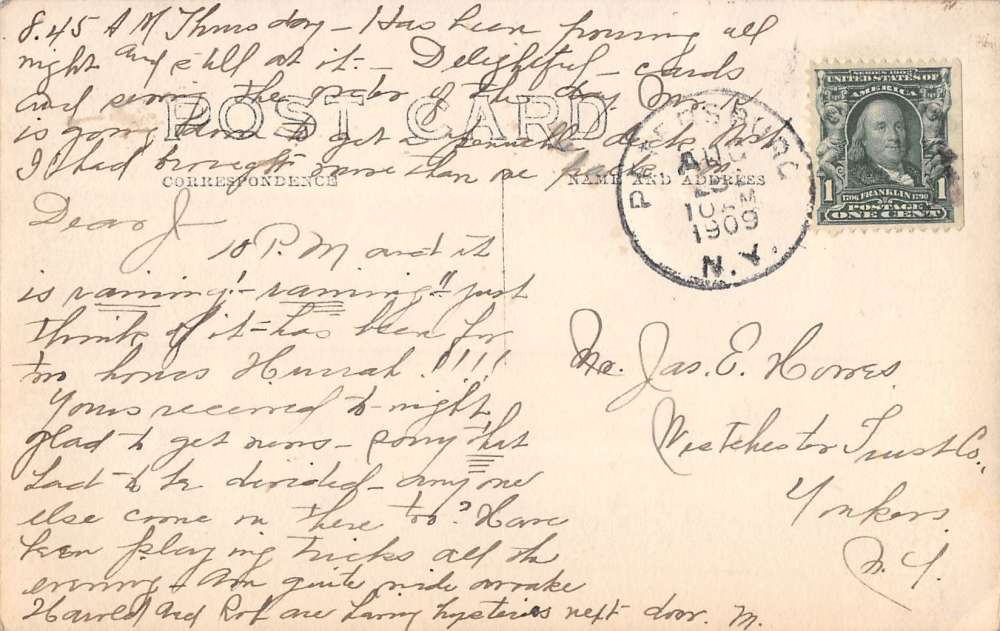 8.45 A M Thursday - Has been pouring all
night and still at it - Delightful - cards
and sewing the order of the day Mr. K
is going down to get a pinochle deck. Wish
I had brought more than one pack
POST CARD
CORRESPONDENCE
NAME AND ADDRESS
Dear J-
10 P. M and it
is raining! - raining!! just
think of it - has been for
two hours Hurrah!!!!
Yours received to-night
glad to get news - sorry that
had to be divided - anyone
else come in there too? Have
been playing tricks all the
evening - Am quite wide awake
Harold and Rob are having hysterics next door. M.
AUG
10 AM
1909
N.Y.
SERIES 1902
UNITED STATES OF
AMERICA
1 1
1706 FRANKLIN 1790
POSTAGE
ONE CENT
Mr. Jas. E. Howes.
Westchester Trust Co.,
Yonkers.
N. Y.